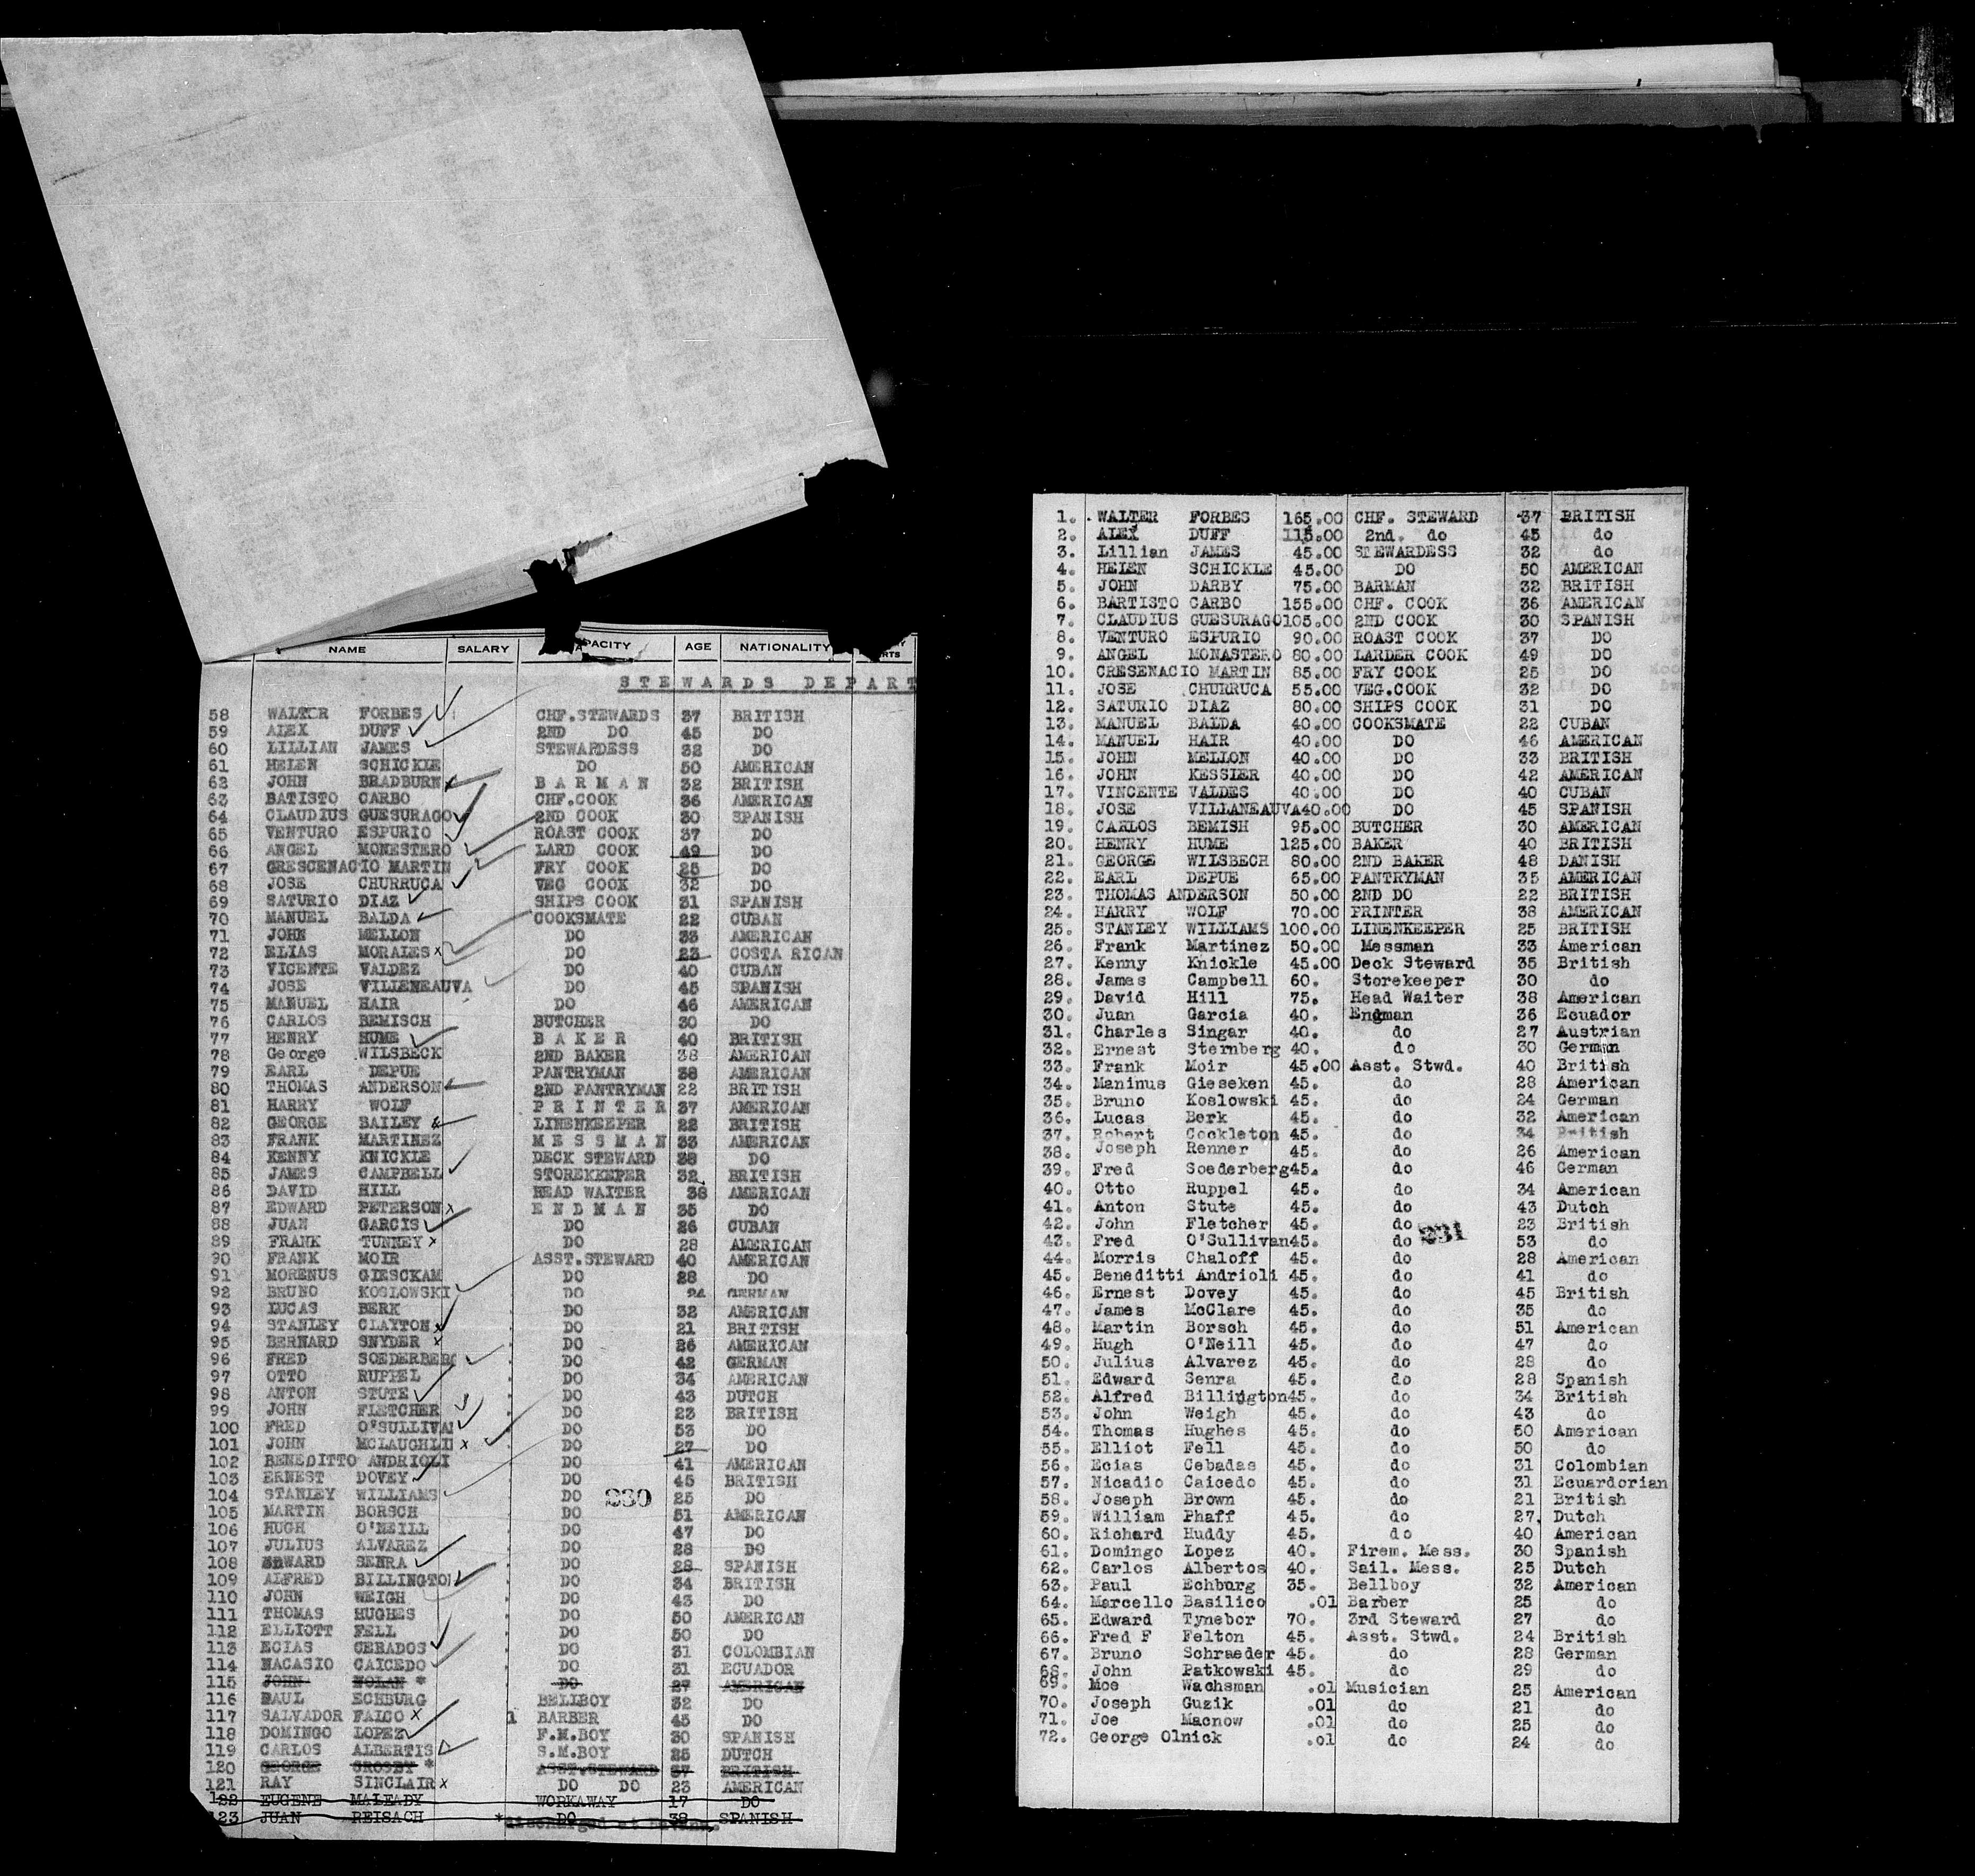 NAME SALARY AGE NATIONALITY
STEWARDS DEPART
58 WALTER FORBES CHF.STEWARDS 37 BRITISH
59 ALEX DUFF 2ND DO 45 DO
60 LILLIAN JAMES STEWARDESS 32 DO
61 HELEN SCHICKLE DO 50 AMERICAN
62 JOHN BRADBURN BARMAN 32 BRITISH
63 BATISTO CARBO CHF.COOK 36 AMERICAN
64 CLAUDIUS GUESURAGO 2ND COOK 30 SPANISH
65 VENTURO ESPURIO ROAST COOK 37 DO
66 ANGEL MONESTERO LARD COOK 49 DO
67 CRESCENACIO MARTIN FRY COOK 25 DO
68 JOSE CHURRUCA VEG COOK 32 DO
69 SATURIO DIAZ SHIPS COOK 31 SPANISH
70 MANUEL BALDA COOKSMATE 22 CUBAN
71 JOHN MELLON DO 33 AMERICAN
72 ELIAS MORALES x DO 23 COSTA RICAN
73 VICENTE VALDEZ DO 40 CUBAN
74 JOSE VILLENEAUVA DO 45 SPANISH
75 MANUEL HAIR DO 46 AMERICAN
76 CARLOS BEMISCH BUTCHER 30 DO
77 HENRY HUME BAKER 40 BRITISH
78 George WILSBECK 2ND BAKER 38 AMERICAN
79 EARL DEPUE PANTRYMAN 38 AMERICAN
80 THOMAS ANDERSON 2ND PANTRYMAN 22 BRITISH
81 HARRY WOLF PRINTER 37 AMERICAN
82 GEORGE BAILEY LINENKEEPER 22 BRITISH
83 FRANK MARTINEZ MESSMAN 33 AMERICAN
84 KENNY KNICKLE DECK STEWARD 38 DO
85 JAMES CAMPBELL STOREKEEPER 32 BRITISH
86 DAVID HILL HEAD WAITER 38 AMERICAN
87 EDWARD PETERSON x ENDMAN 35 DO
88 JUAN GARCIS DO 26 CUBAN
89 FRANK TUNNEY x DO 28 AMERICAN
90 FRANK MOIR ASST.STEWARD 40 AMERICAN
91 MORENUS GIESCKAM DO 28 DO
92 BRUNO KOSLOWSKI DO 24 GERMAN
93 LUCAS BERK DO 32 AMERICAN
94 STANLEY CLAYTON x DO 21 BRITISH
95 BERNARD SNYDER x DO 26 AMERICAN
96 FRED SOEDERBERG DO 42 GERMAN
97 OTTO RUPPEL DO 34 AMERICAN
98 ANTON STUTE DO 43 DUTCH
99 JOHN FLETCHER DO 23 BRITISH
100 FRED O'SULLIVAN DO 53 DO
101 JOHN MCLAUGHLIN x DO 27 DO
102 BENEDITTO ANDRIOLI DO 41 AMERICAN
103 ERNEST DOVEY DO 45 BRITISH
104 STANLEY WILLIAMS DO 230 25 DO
105 MARTIN BORSCH DO 51 AMERICAN
106 HUGH O'NEILL DO 47 DO
107 JULIUS ALVAREZ DO 28 DO
108 EDWARD SENRA DO 28 SPANISH
109 ALFRED BILLINGTON DO 34 BRITISH
110 JOHN WEIGH DO 43 DO
111 THOMAS HUGHES DO 50 AMERICAN
112 ELLIOTT FELL DO 50 DO
113 ECIAS CEBADOS DO 31 COLOMBIAN
114 NACASIO CAICEDO DO 31 ECUADOR
115 JOHN NOLAN * DO 27 AMERICAN
116 PAUL ECHBURG BELLBOY 32 DO
117 SALVADOR FALCO x 1 BARBER 45 DO
118 DOMINGO LOPEZ F.M.BOY 30 SPANISH
119 CARLOS ALBERTIS S.M.BOY 25 DUTCH
120 GEORGE CROSBY * ASST.STEWARD 37 BRITISH
121 RAY SINCLAIR x DO DO 23 AMERICAN
122 EUGENE MALEADY WORKAWAY 17 DO
123 JUAN REISACH DO 38 SPANISH
* discharged at Havana.
1. WALTER FORBES 165.00 CHF. STEWARD 37 BRITISH
2. ALEX DUFF 115.00 2nd. do 45 do
3. Lillian JAMES 45.00 STEWARDESS 32 do
4. HELEN SCHICKLE 45.00 DO 50 AMERICAN
5. JOHN DARBY 75.00 BARMAN 32 BRITISH
6. BARTISTO CARBO 155.00 CHF. COOK 36 AMERICAN
7. CLAUDIUS GUESURAGO 105.00 2ND COOK 30 SPANISH
8. VENTURO ESPURIO 90.00 ROAST COOK 37 DO
9. ANGEL MONASTERO 80.00 LARDER COOK 49 DO
10. CRESENACIO MARTIN 85.00 FRY COOK 25 DO
11. JOSE CHURRUCA 55.00 VEG.COOK 32 DO
12. SATURIO DIAZ 80.00 SHIPS COOK 31 DO
13. MANUEL BALDA 40.00 COOKSMATE 22 CUBAN
14. MANUEL HAIR 40.00 DO 46 AMERICAN
15. JOHN MELLON 40.00 DO 33 BRITISH
16. JOHN KESSIER 40.00 DO 42 AMERICAN
17. VINCENTE VALDES 40.00 DO 40 CUBAN
18. JOSE VILLANEAUVA 40.00 DO 45 SPANISH
19. CARLOS BEMISH 95.00 BUTCHER 30 AMERICAN
20. HENRY HUME 125.00 BAKER 40 BRITISH
21. GEORGE WILSBECH 80.00 2ND BAKER 48 DANISH
22. EARL DEPUE 65.00 PANTRYMAN 35 AMERICAN
23. THOMAS ANDERSON 50.00 2ND DO 22 BRITISH
24. HARRY WOLF 70.00 PRINTER 38 AMERICAN
25. STANLEY WILLIAMS 100.00 LINENKEEPER 25 BRITISH
26. Frank Martinez 50.00 Messman 33 American
27. Kenny Knickle 45.00 Deck Steward 35 British
28. James Campbell 60. Storekeeper 30 do
29. David Hill 75. Head Waiter 38 American
30. Juan Garcia 40. Endman 36 Ecuador
31. Charles Singar 40. do 27 Austrian
32. Ernest Sternberg 40. do 30 German
33. Frank Moir 45.00 Asst. Stwd. 40 British
34. Maninus Gieseken 45. do 28 American
35. Bruno Koslowski 45. do 24 German
36. Lucas Berk 45. do 32 American
37. Robert Cockleton 45. do 34 British
38. Joseph Renner 45. do 26 American
39. Fred Soederberg 45. do 46 German
40. Otto Ruppel 45. do 34 American
41. Anton Stute 45. do 43 Dutch
42. John Fletcher 45. do 23 British
43. Fred O'Sullivan 45. do 231 53 do
44. Morris Chaloff 45. do 28 American
45. Beneditti Andrioli 45. do 41 do
46. Ernest Dovey 45. do 45 British
47. James McClare 45. do 35 do
48. Martin Borsch 45. do 51 American
49. Hugh O'Neill 45. do 47 do
50. Julius Alvarez 45. do 28 do
51. Edward Senra 45. do 28 Spanish
52. Alfred Billington 45. do 34 British
53. John Weigh 45. do 43 do
54. Thomas Hughes 45. do 50 American
55. Elliot Fell 45. do 50 do
56. Ecias Cebadas 45. do 31 Colombian
57. Nicadio Caicedo 45. do 31 Ecuardorian
58. Joseph Brown 45. do 21 British
59. William Phaff 45. do 27 Dutch
60. Richard Huddy 45. do 40 American
61. Domingo Lopez 40. Firem. Mess. 30 Spanish
62. Carlos Albertos 40. Sail. Mess. 25 Dutch
63. Paul Echburg 35. Bellboy 32 American
64. Marcello Basilico .01 Barber 25 do
65. Edward Tynebor 70. 3rd Steward 27 do
66. Fred F Felton 45. Asst. Stwd. 24 British
67. Bruno Schraeder 45. do 28 German
68. John Patkowski 45. do 29 do
69. Moe Wachsman .01 Musician 25 American
70. Joseph Guzik .01 do 21 do
71. Joe Macnow .01 do 25 do
72. George Olnick .01 do 24 do